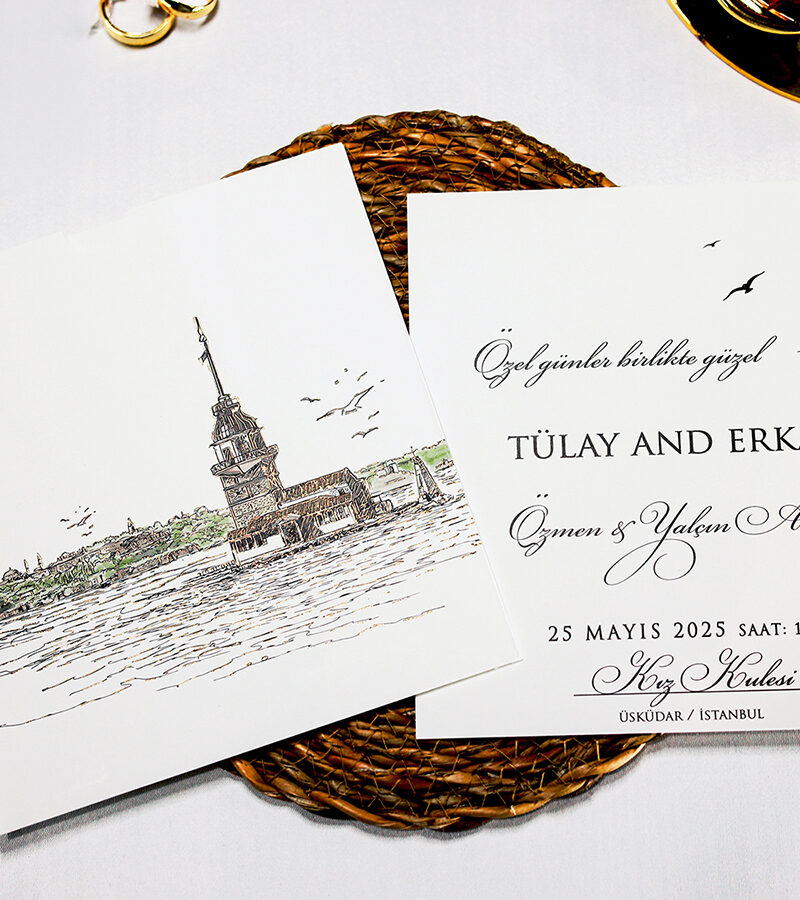 Özel günler birlikte güzel
TÜLAY AND ERKA
Özmen & Yalçın A
25 MAYIS 2025 SAAT: 1
Kız Kulesi
ÜSKÜDAR / İSTANBUL